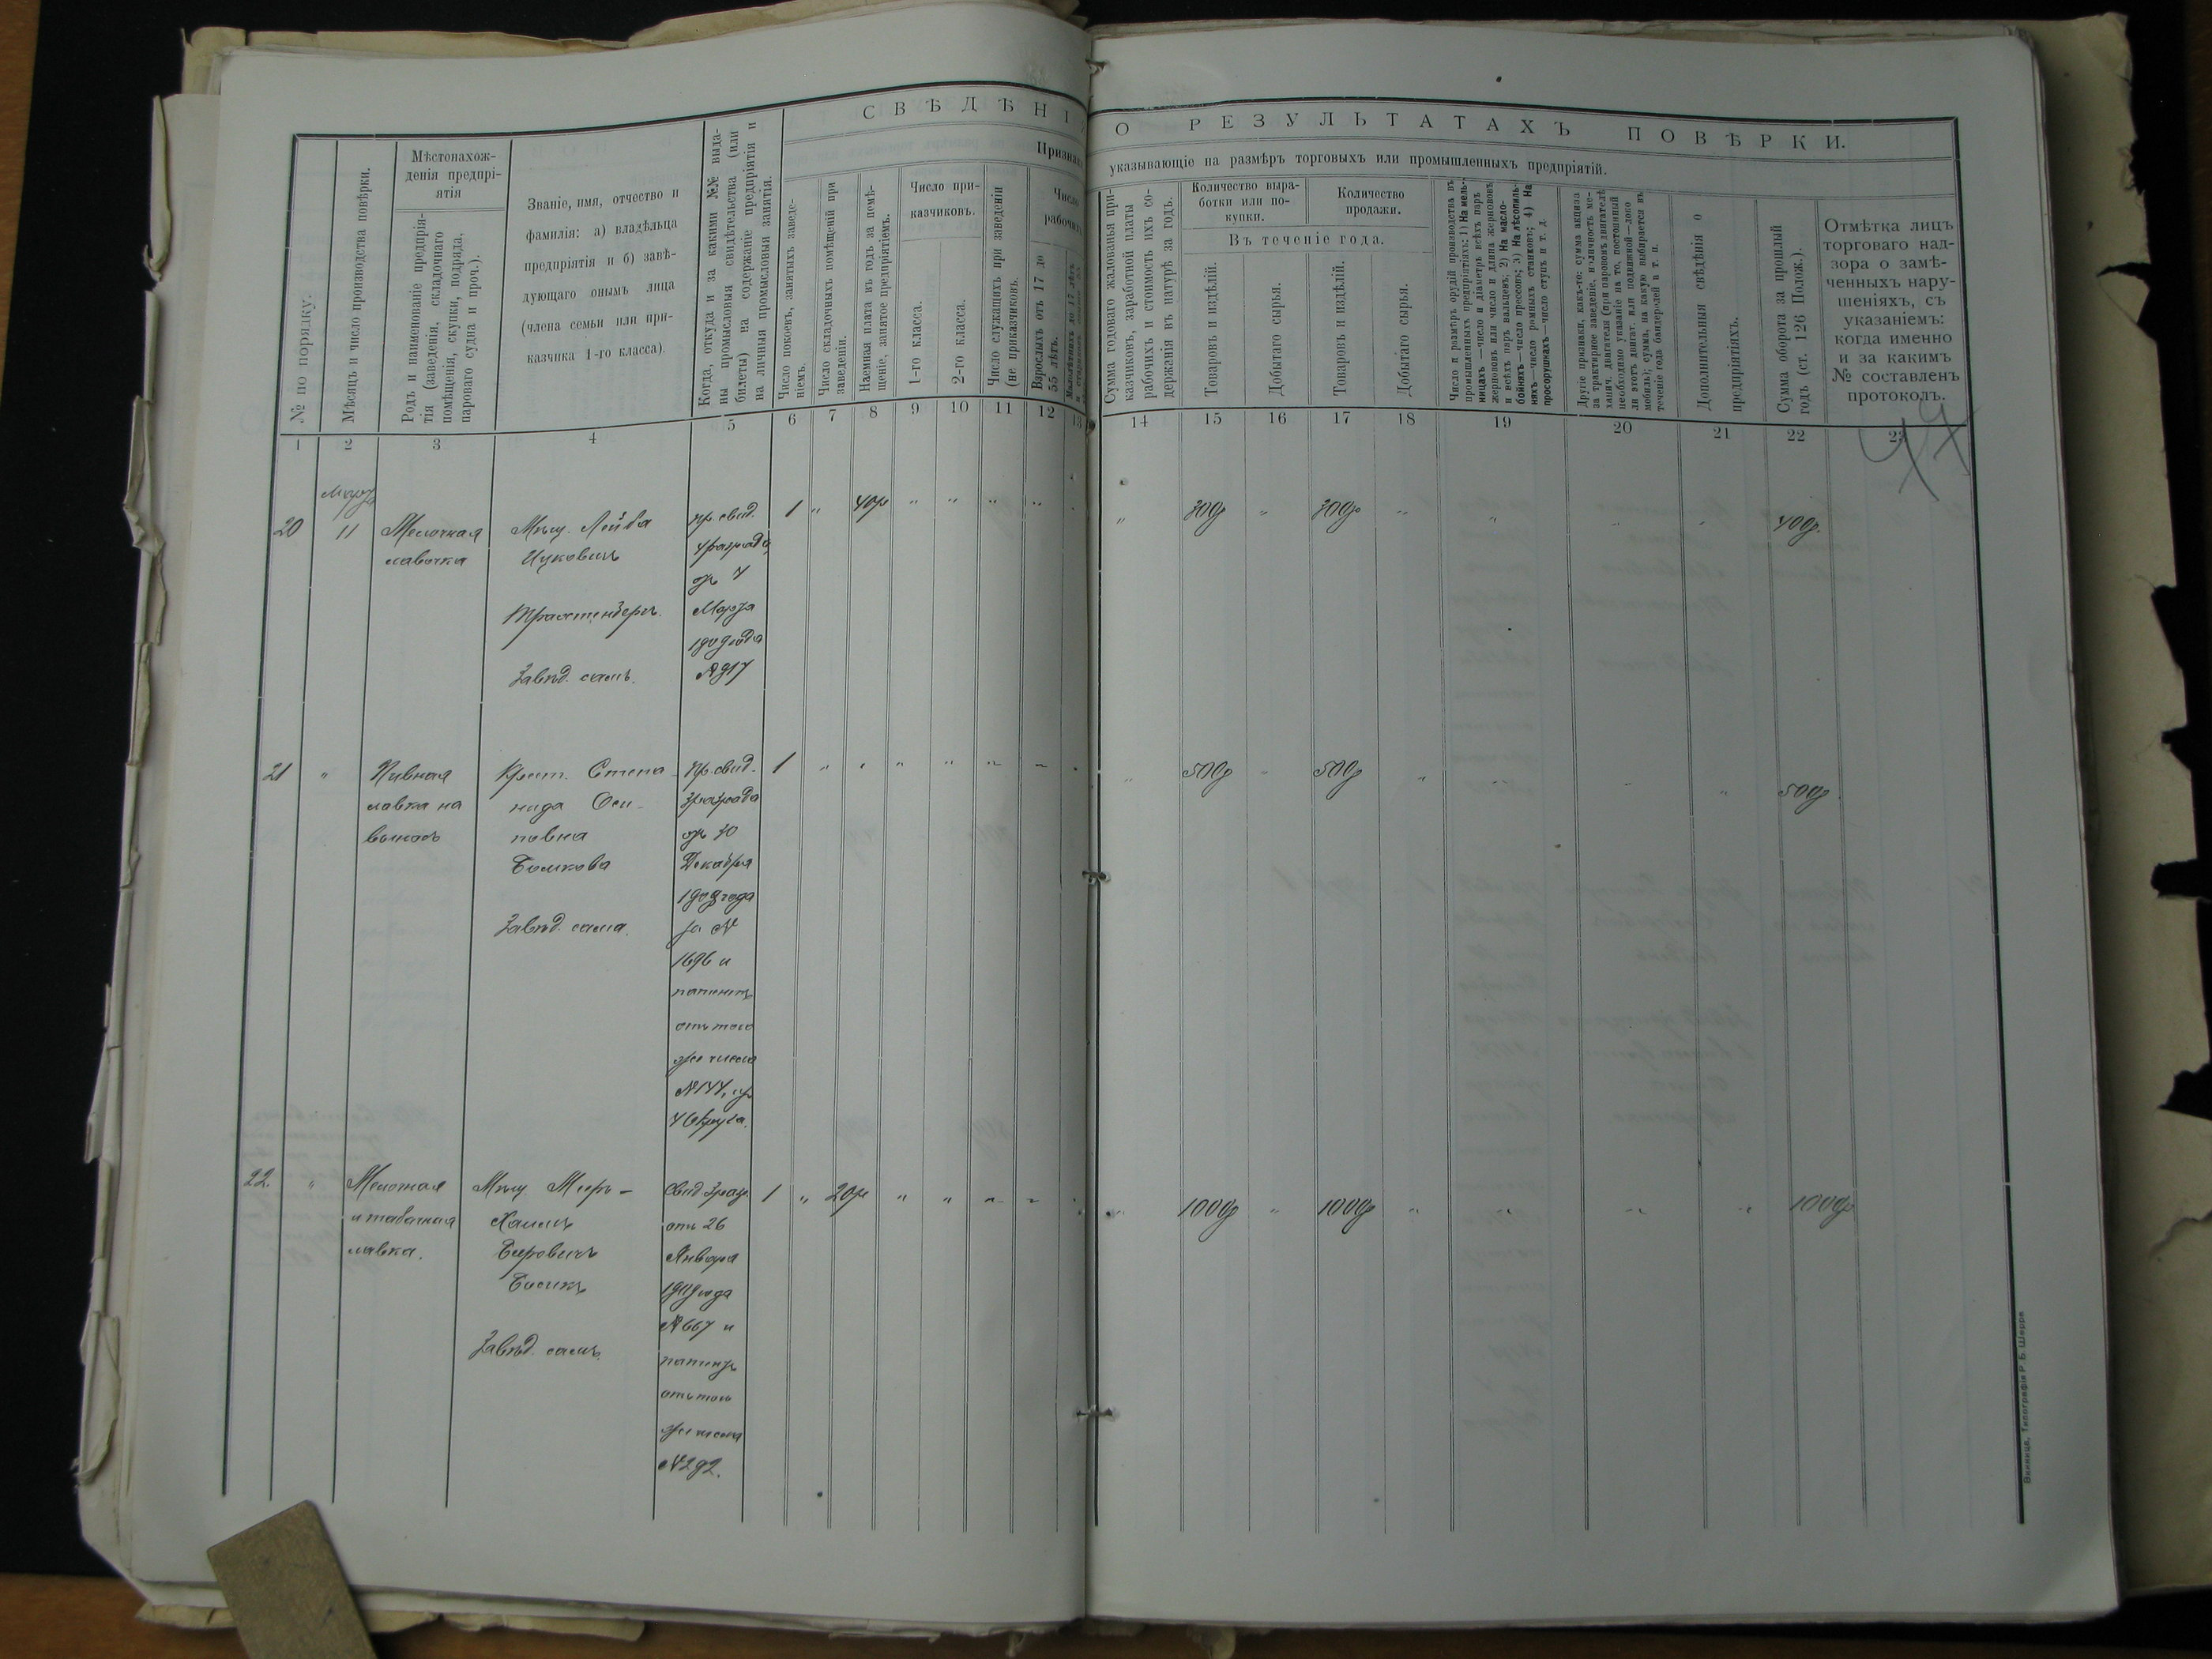 СВѢДѢНІЯ О РЕЗУЛЬТАТАХЪ ПОВѢРКИ.
указывающіе на размѣръ торговыхъ или промышленныхъ предпріятій.
№ по порядку.
Мѣсяцъ и число производства повѣрки.
Мѣстонахож-
денія предпрі-
ятія
Родъ и наименованіе предпрія-
тія (заведенія, складочнаго
помѣщенія, скупки, подряда,
пароваго судна и проч.).
Званіе, имя, отчество и
фамилія: а) владѣльца
предпріятія и б) завѣ-
дующаго онымъ лица
(члена семьи или при-
казчика 1-го класса).
Когда, откуда и за какими №№ выда-
ны промысловыя свидѣтельства (или
билеты) на содержаніе предпріятія и
на личныя промысловыя занятія.
Число покоевъ, занятыхъ заведе-
ніемъ.
Число складочныхъ помѣщеній при
заведеніи.
Наемная плата въ годъ за помѣ-
щеніе, занятое предпріятіемъ.
Число при-
казчиковъ.
1-го класса.
2-го класса.
Число служащихъ при заведеніи
(не приказчиковъ.
Число
Взрослыхъ отъ 17 до
55 лѣтъ.
Сумма годоваго жалованья при-
казчиковъ, заработной платы
рабочихъ и стоимость ихъ со-
держанія въ натурѣ за годъ.
Количество выра-
ботки или по-
купки.
Количество
продажи.
Въ теченіе года.
Товаровъ и издѣлій.
Добытаго сырья.
Товаровъ и издѣлій.
Добытаго сырья.
Число и размѣръ орудій производства въ
промышленныхъ предпріятіяхъ: 1) На мель-
ницахъ—число и діаметръ всѣхъ паръ
жернововъ или число и длина жернововъ
и всѣхъ паръ вальцевъ; 2) На масло-
бойняхъ—число прессовъ; 3) На лѣсопиль-
няхъ—число рамныхъ станковъ; 4) На
просорушкахъ—число ступъ и т. д.
Другіе признаки, какъ-то: сумма акциза
за трактирное заведеніе, наличность ме-
ханич. двигателя (при паровомъ двигателѣ
необходимо указаніе на то, постоянный
ли этотъ двигат. или подвижной—локо
мобиль); сумма, на какую выбирается въ
теченіе года бандеролей и т. п.
Дополнительныя свѣдѣнія о
предпріятіяхъ.
Сумма оборота за прошлый
годъ (ст. 126 Полож.).
Отмѣтка лицъ
торговаго над-
зора о замѣ-
ченныхъ нару-
шеніяхъ, съ
указаніемъ:
когда именно
и за какимъ
№ составленъ
протоколъ.
1 2 3 4 5 6 7 8 9 10 11 12 13 14 15 16 17 18 19 20 21 22 23
Марта
20 11 Мелочная
лавочка
Мѣщ. Лейба
Ицковичъ
Трастенберг.
Завѣд. самъ.
пр. свид.
4 разряда
отъ 4
Марта
1909 года
№ 917
1 " 40р " " " " " 300р " 300р " " " " 400р.
21 " Пивная
лавка на
выносъ
Крест. Степа-
нида Оси-
повна
Завѣд. сама.
пр. свид.
3 разряда
отъ 30
Декабря
1908 года
за №
1696 и
патентъ
отъ того
же числа
№ 144,
4 Округа.
1 " " " " " " " 500р " 500р " " " " 500р.
22. " Мелочная
и табачная
лавка.
Мѣщ. Меръ-
Хаимъ
Беровичъ
Завѣд. самъ.
Свид. 3 разр.
отъ 26
Января
1909 года
№ 667 и
патентъ
отъ того
же числа
№ 292.
1 " 20р " " " " " 1000р " 1000р " " " " 1000р
Винница, Типографія Р. Б. Шерра